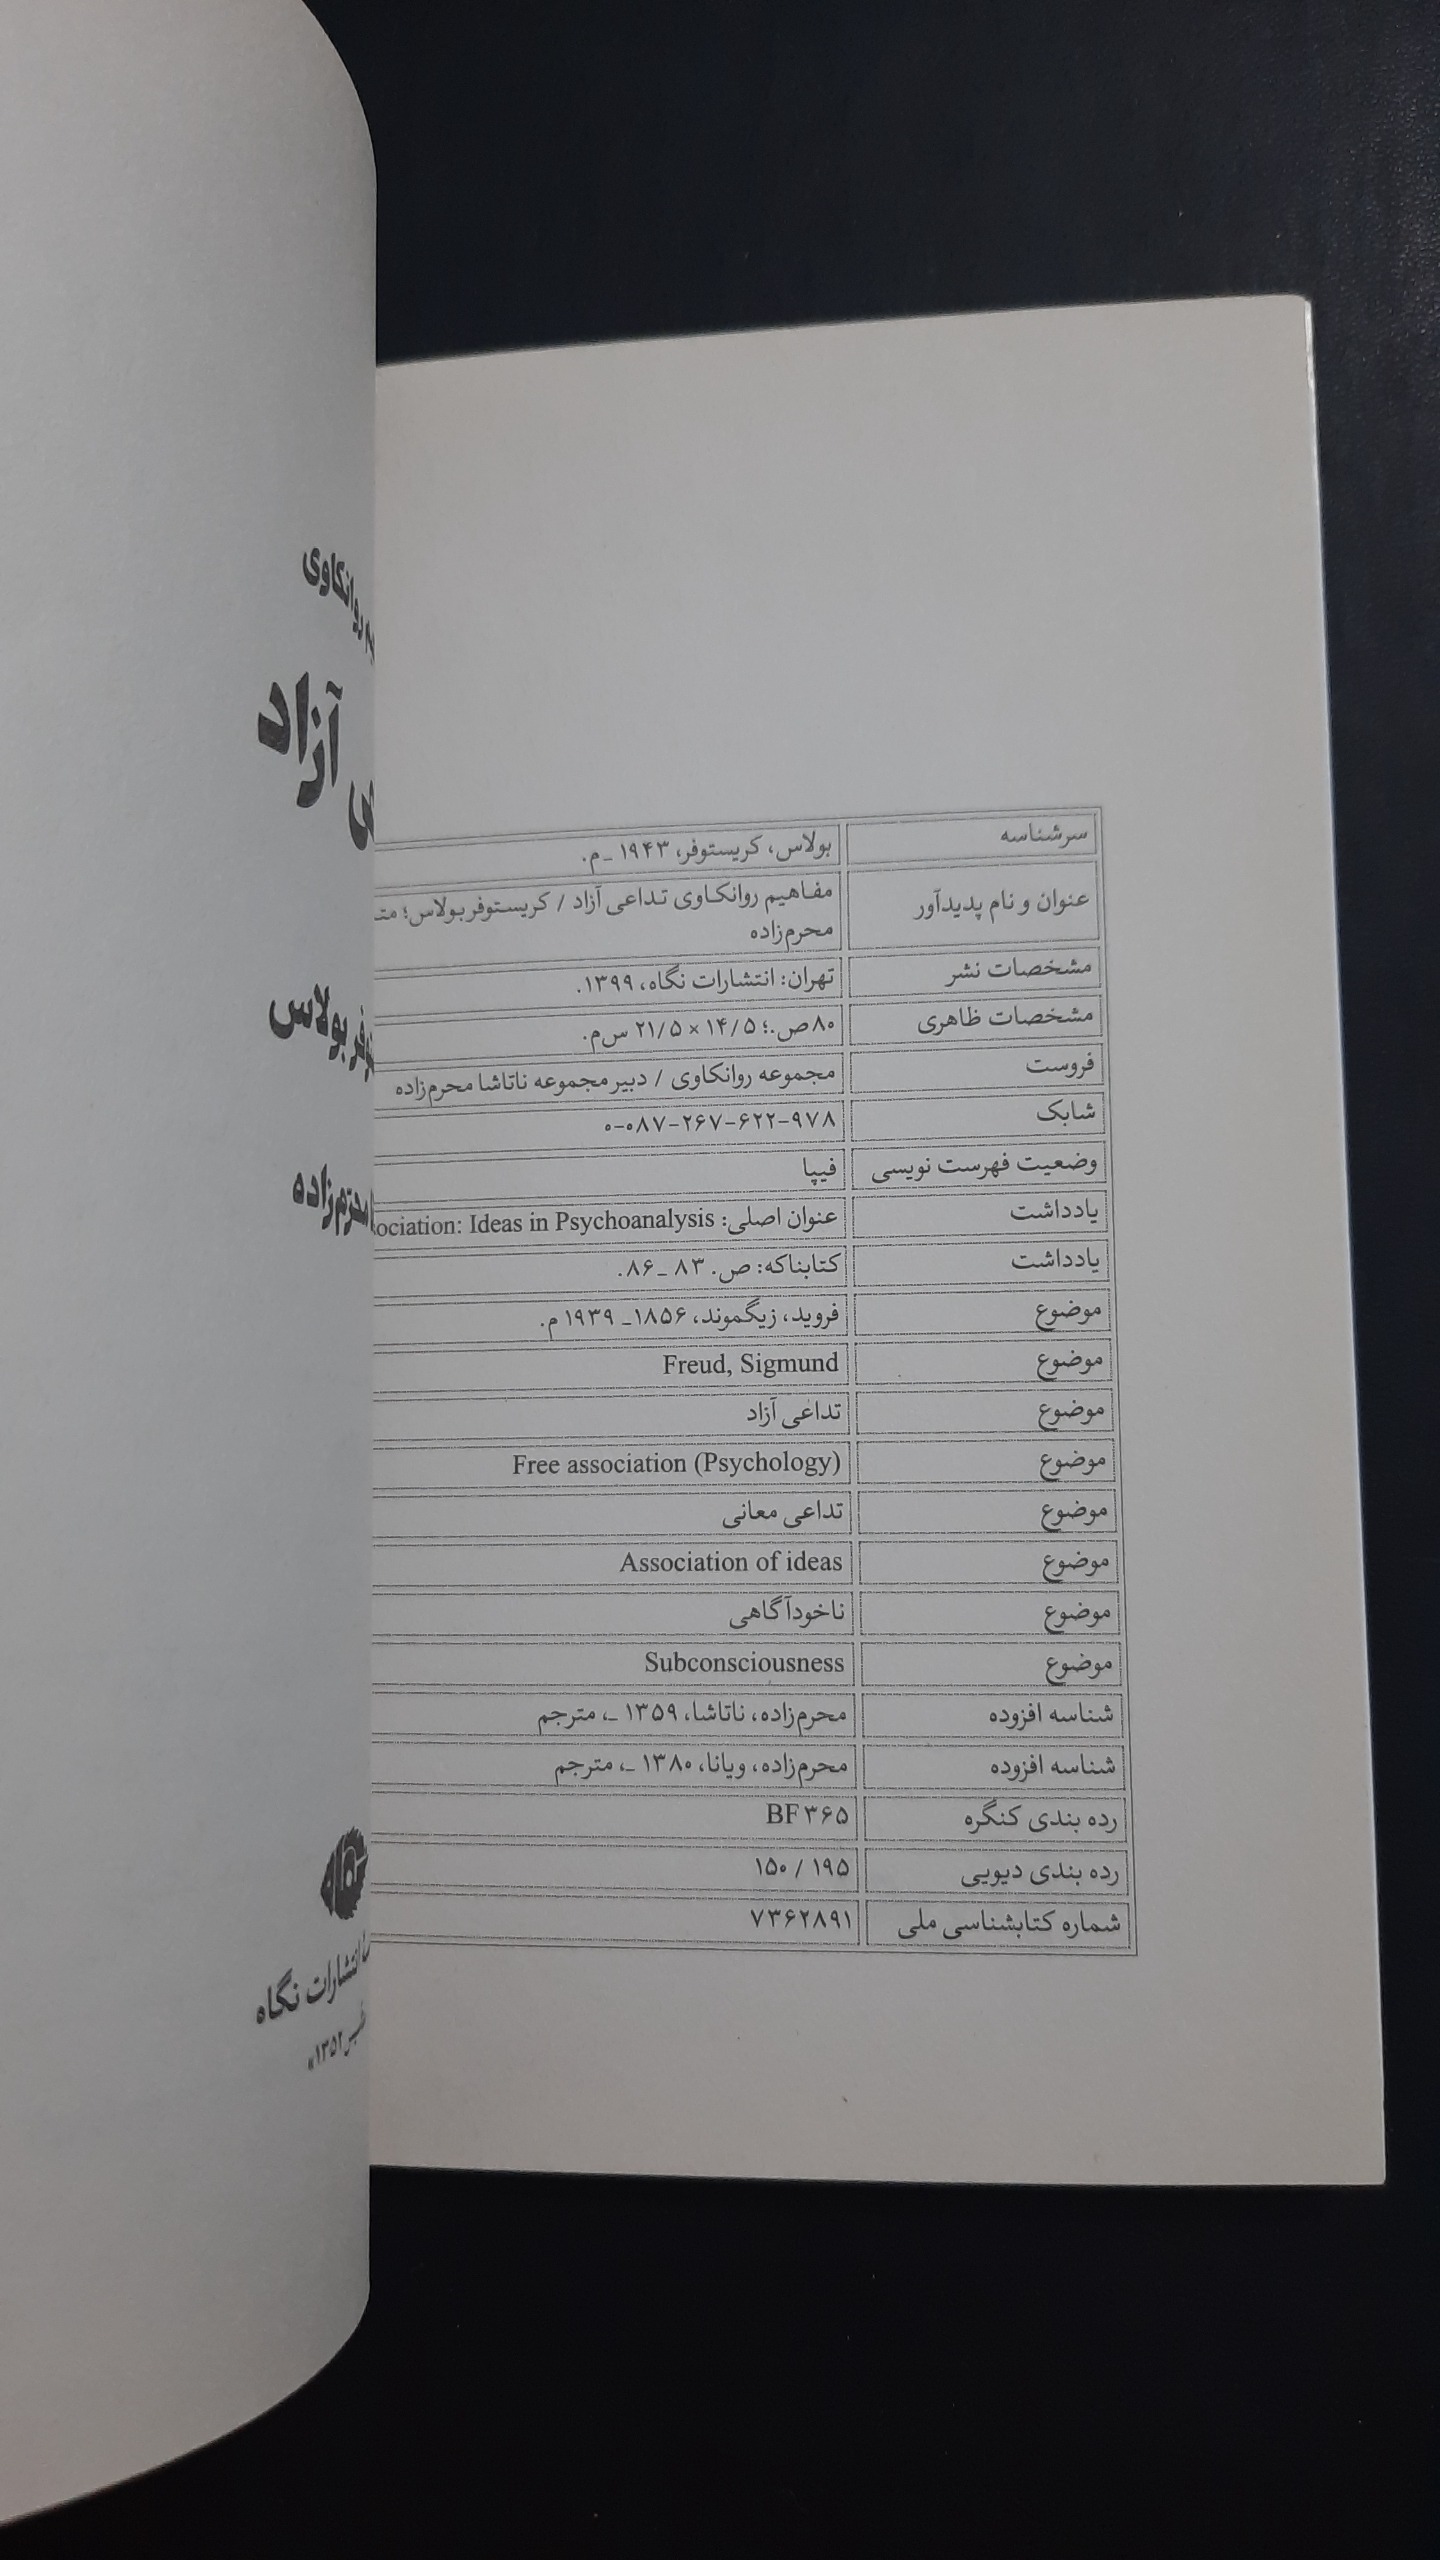 روانکاوی
آزاد
بولاس
محرم‌زاده
انتشارات نگاه
۱۳۵۲»
سرشناسه بولاس، کریستوفر، ۱۹۴۳ ـ م.
عنوان و نام پدیدآور مفاهیم روانکاوی تداعی آزاد / کریستوفر بولاس؛
محرم‌زاده
مشخصات نشر تهران: انتشارات نگاه، ۱۳۹۹.
مشخصات ظاهری ۸۰ ص.؛ ۱۴/۵ × ۲۱/۵ س‌م.
فروست مجموعه روانکاوی / دبیر مجموعه ناتاشا محرم‌زاده
شابک ۹۷۸-۶۲۲-۲۶۷-۰۸۷-۰
وضعیت فهرست نویسی فیپا
یادداشت عنوان اصلی: ociation: Ideas in Psychoanalysis
یادداشت کتابناکه: ص. ۸۳ ـ ۸۶.
موضوع فروید، زیگموند، ۱۸۵۶ـ ۱۹۳۹ م.
موضوع Freud, Sigmund
موضوع تداعی آزاد
موضوع Free association (Psychology)
موضوع تداعی معانی
موضوع Association of ideas
موضوع ناخودآگاهی
موضوع Subconsciousness
شناسه افزوده محرم‌زاده، ناتاشا، ۱۳۵۹ ـ، مترجم
شناسه افزوده محرم‌زاده، ویانا، ۱۳۸۰ ـ، مترجم
رده بندی کنگره BF ۳۶۵
رده بندی دیویی ۱۵۰ / ۱۹۵
شماره کتابشناسی ملی ۷۳۶۲۸۹۱